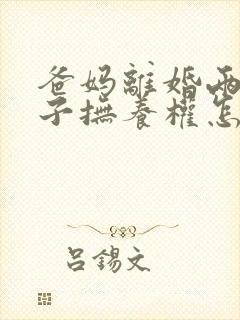 爸妈離婚兩
子撫養權怎
吕錫文